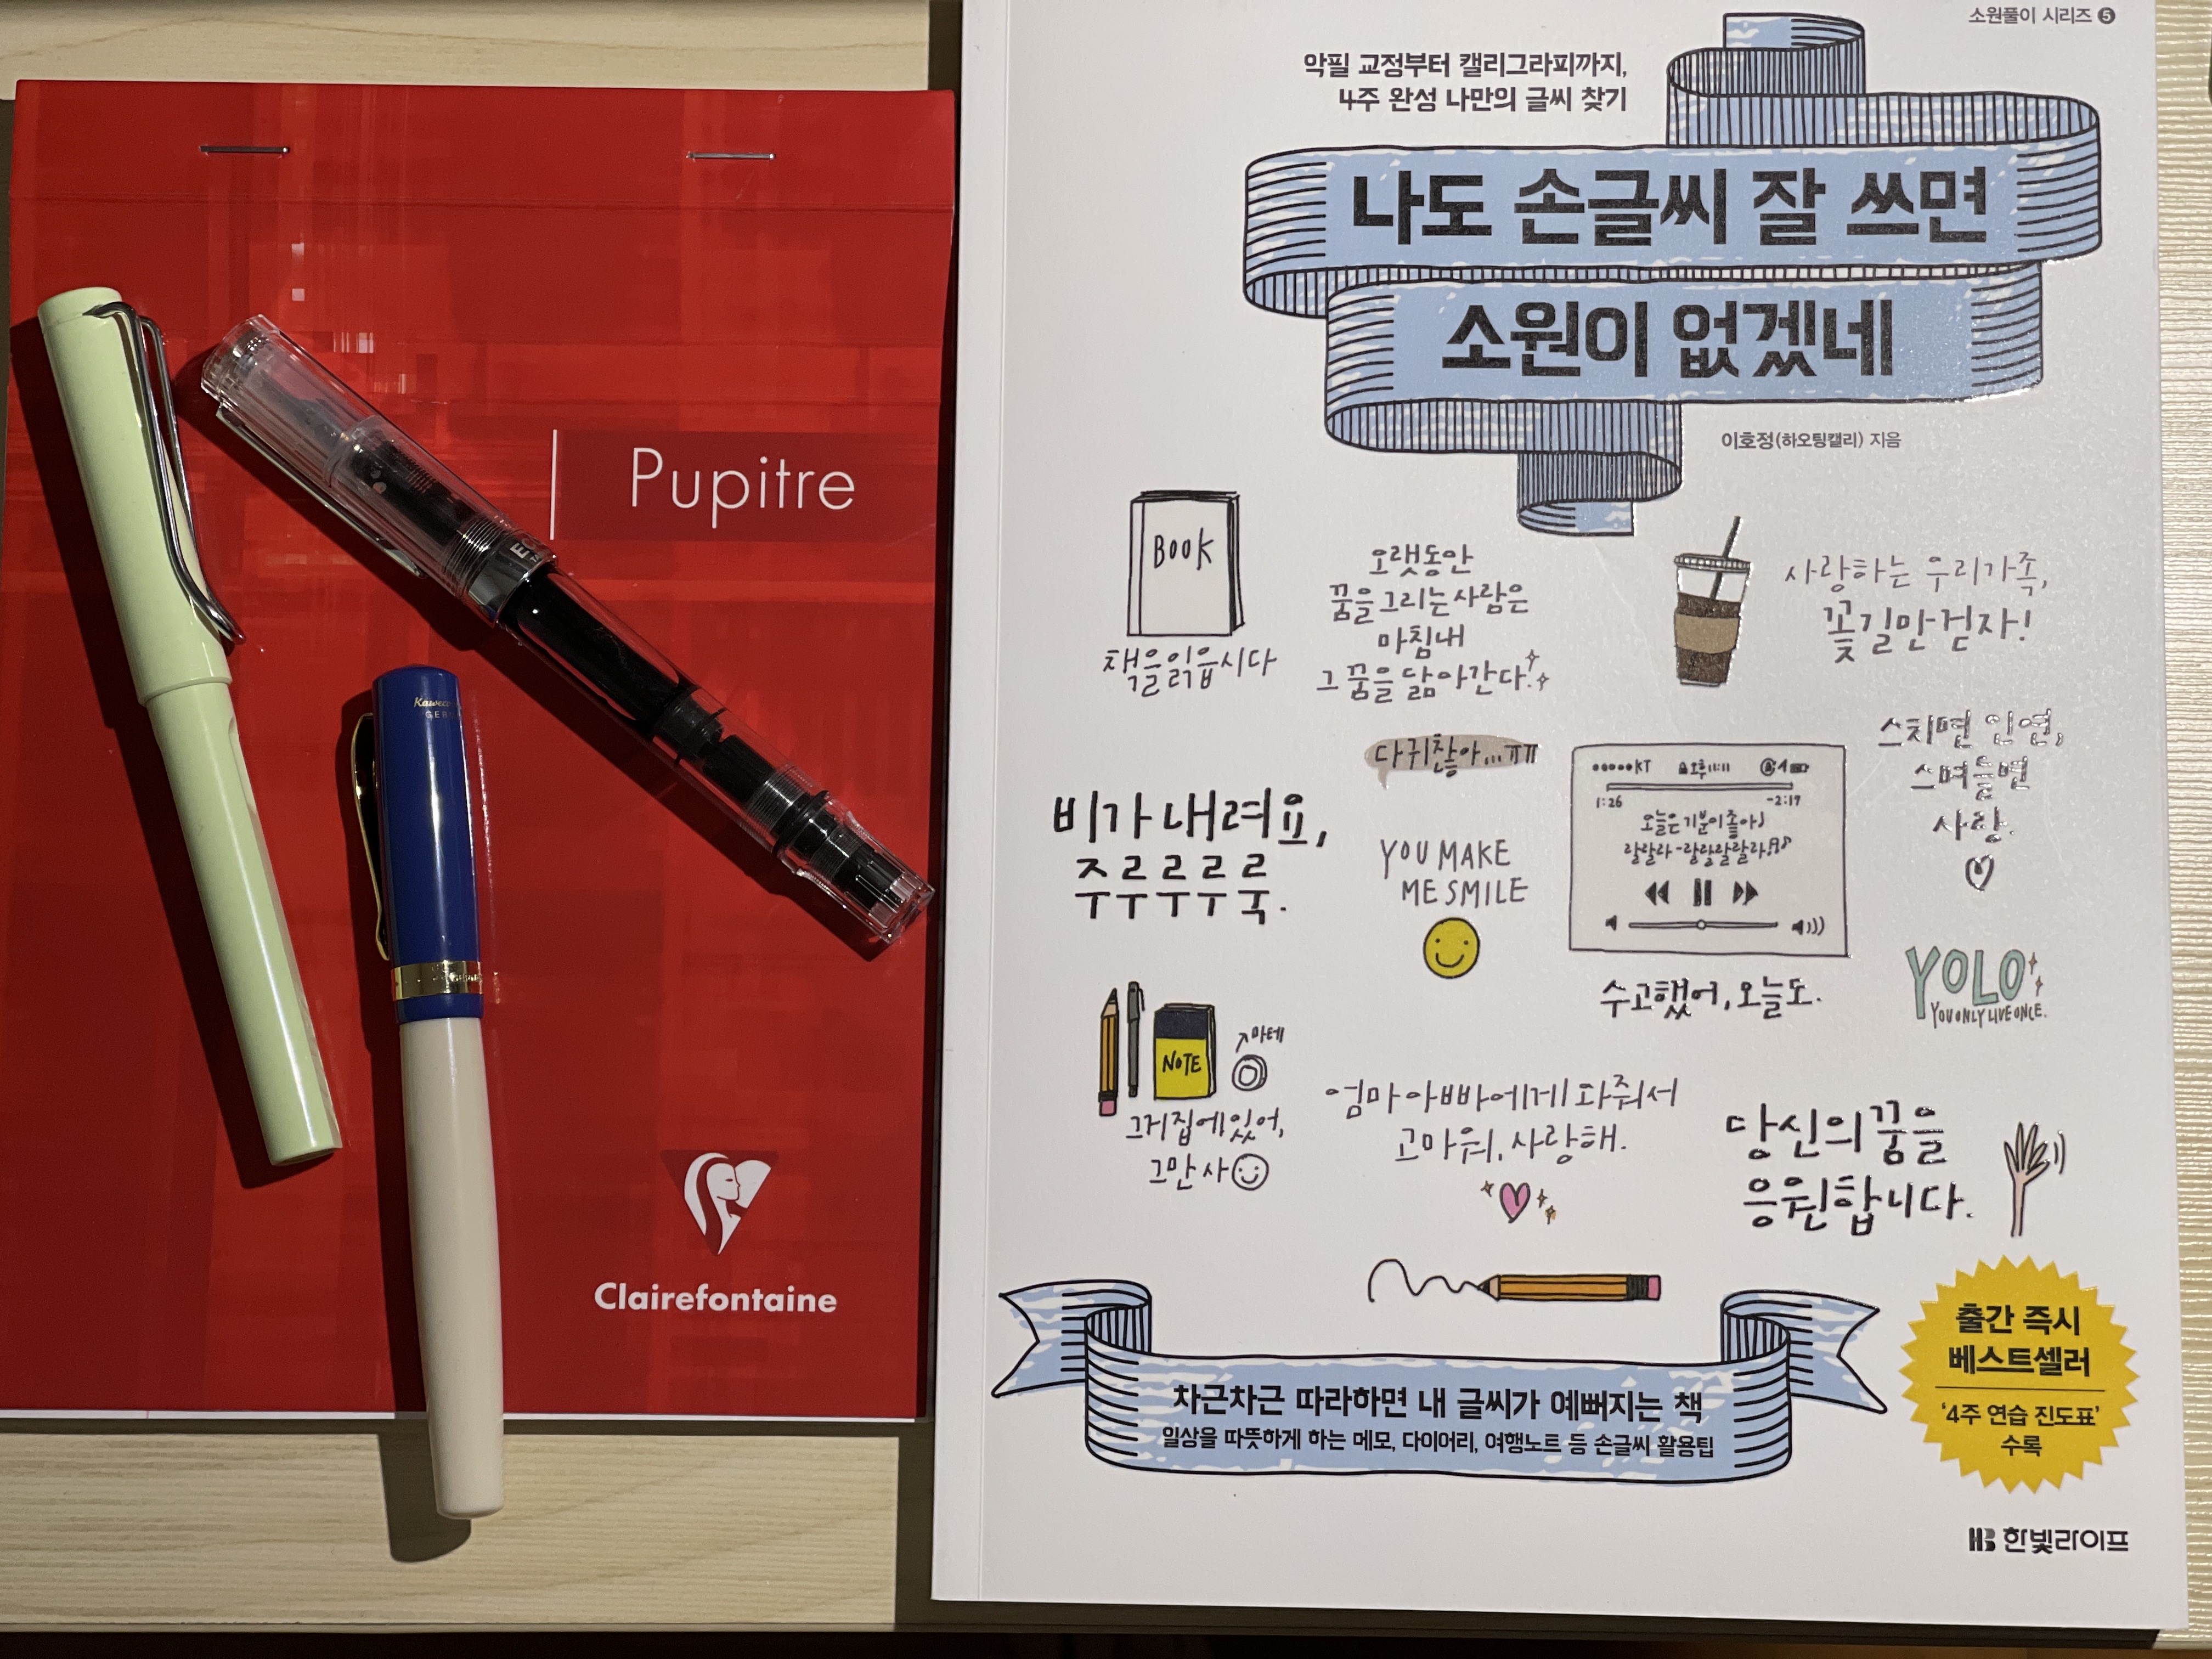 Pupitre
Clairefontaine
Kaweco
소원풀이 시리즈 5
악필 교정부터 캘리그라피까지,
4주 완성 나만의 글씨 찾기
나도 손글씨 잘 쓰면
소원이 없겠네
이호정(하오팅캘리) 지음
BOOK
책을읽읍시다
오랫동안
꿈을그리는사람은
마침내
그꿈을닮아간다.
사랑하는 우리가족,
꽃길만걷자!
다귀찮아...ㅠㅠ
스치면 인연,
스며들면
사랑.
비가내려요,
주루루루룩.
YOU MAKE
ME SMILE
KT 오후11:11
1:26 -2:19
오늘은기분이좋아♪
랄랄라-랄랄랄랄라♬♪
수고했어,오늘도.
YOLO
YOU ONLY LIVE ONCE.
NOTE
마테
그거집에있어,
그만사
엄마아빠에게와줘서
고마워,사랑해.
당신의꿈을
응원합니다.
차근차근 따라하면 내 글씨가 예뻐지는 책
일상을 따뜻하게 하는 메모, 다이어리, 여행노트 등 손글씨 활용팁
출간 즉시
베스트셀러
'4주 연습 진도표'
수록
한빛라이프